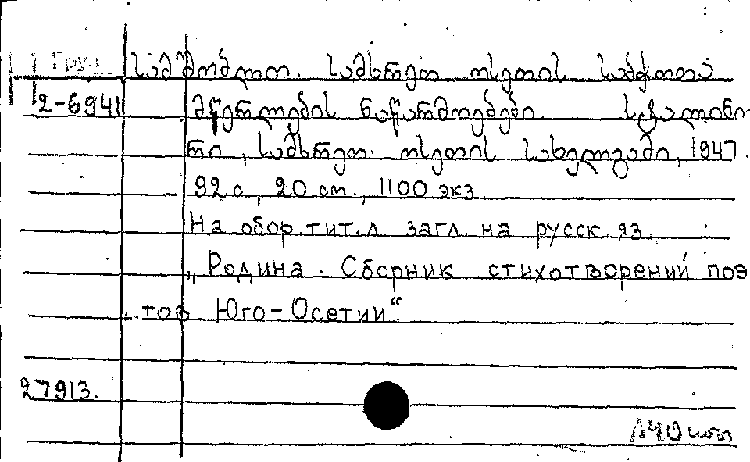 Груз სამშობლო. სამხრეთ ოსეთის საბჭოთა
2-6941 მწერლების ნაწარმოებები. სტალინი
რი, სამხრეთ ოსეთის სახელგამი, 1947.
92 с., 20 см., 1100 экз
На обор. тит. л. загл. на русск яз.
„Родина. Сборник стихотворений поэ
тов Юго-Осетии“
27913.